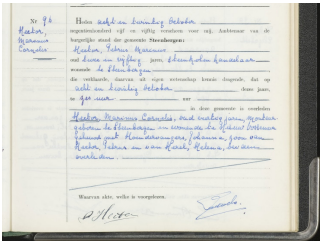 Nr. 96
Hector,
Marinus
Cornelis
Heden acht en twintig October
negentienhonderd vijf en vijftig verscheen voor mij, Ambtenaar van de
burgerlijke stand der gemeente Steenbergen:
Hector, Petrus Marinus
oud twee en vijftig jaren, steenkolenhandelaar
wonende te Steenbergen
die verklaarde, daarvan uit eigen wetenschap kennis dragende, dat op
acht en twintig October dezes jaars,
te zes uur uur
in deze gemeente is overleden
Hector Marinus Cornelis, oud jaren,
geboren te Steenbergen en wonende te
gehuwd met Johanna, zoon van
Hector Petrus en van Helena, beiden
overleden.
Waarvan akte, welke is voorgelezen.
P. Hector